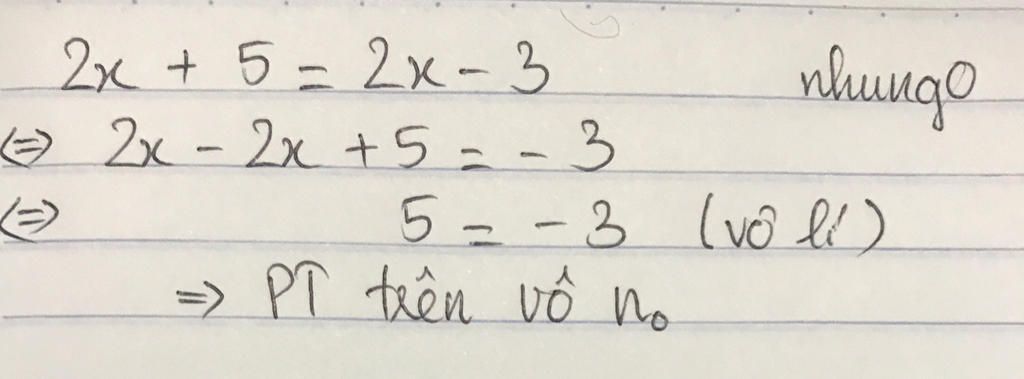 2x + 5 = 2x - 3 nhungo
<=> 2x - 2x + 5 = - 3
<=> 5 = - 3 (vô lí)
=> PT trên vô n₀